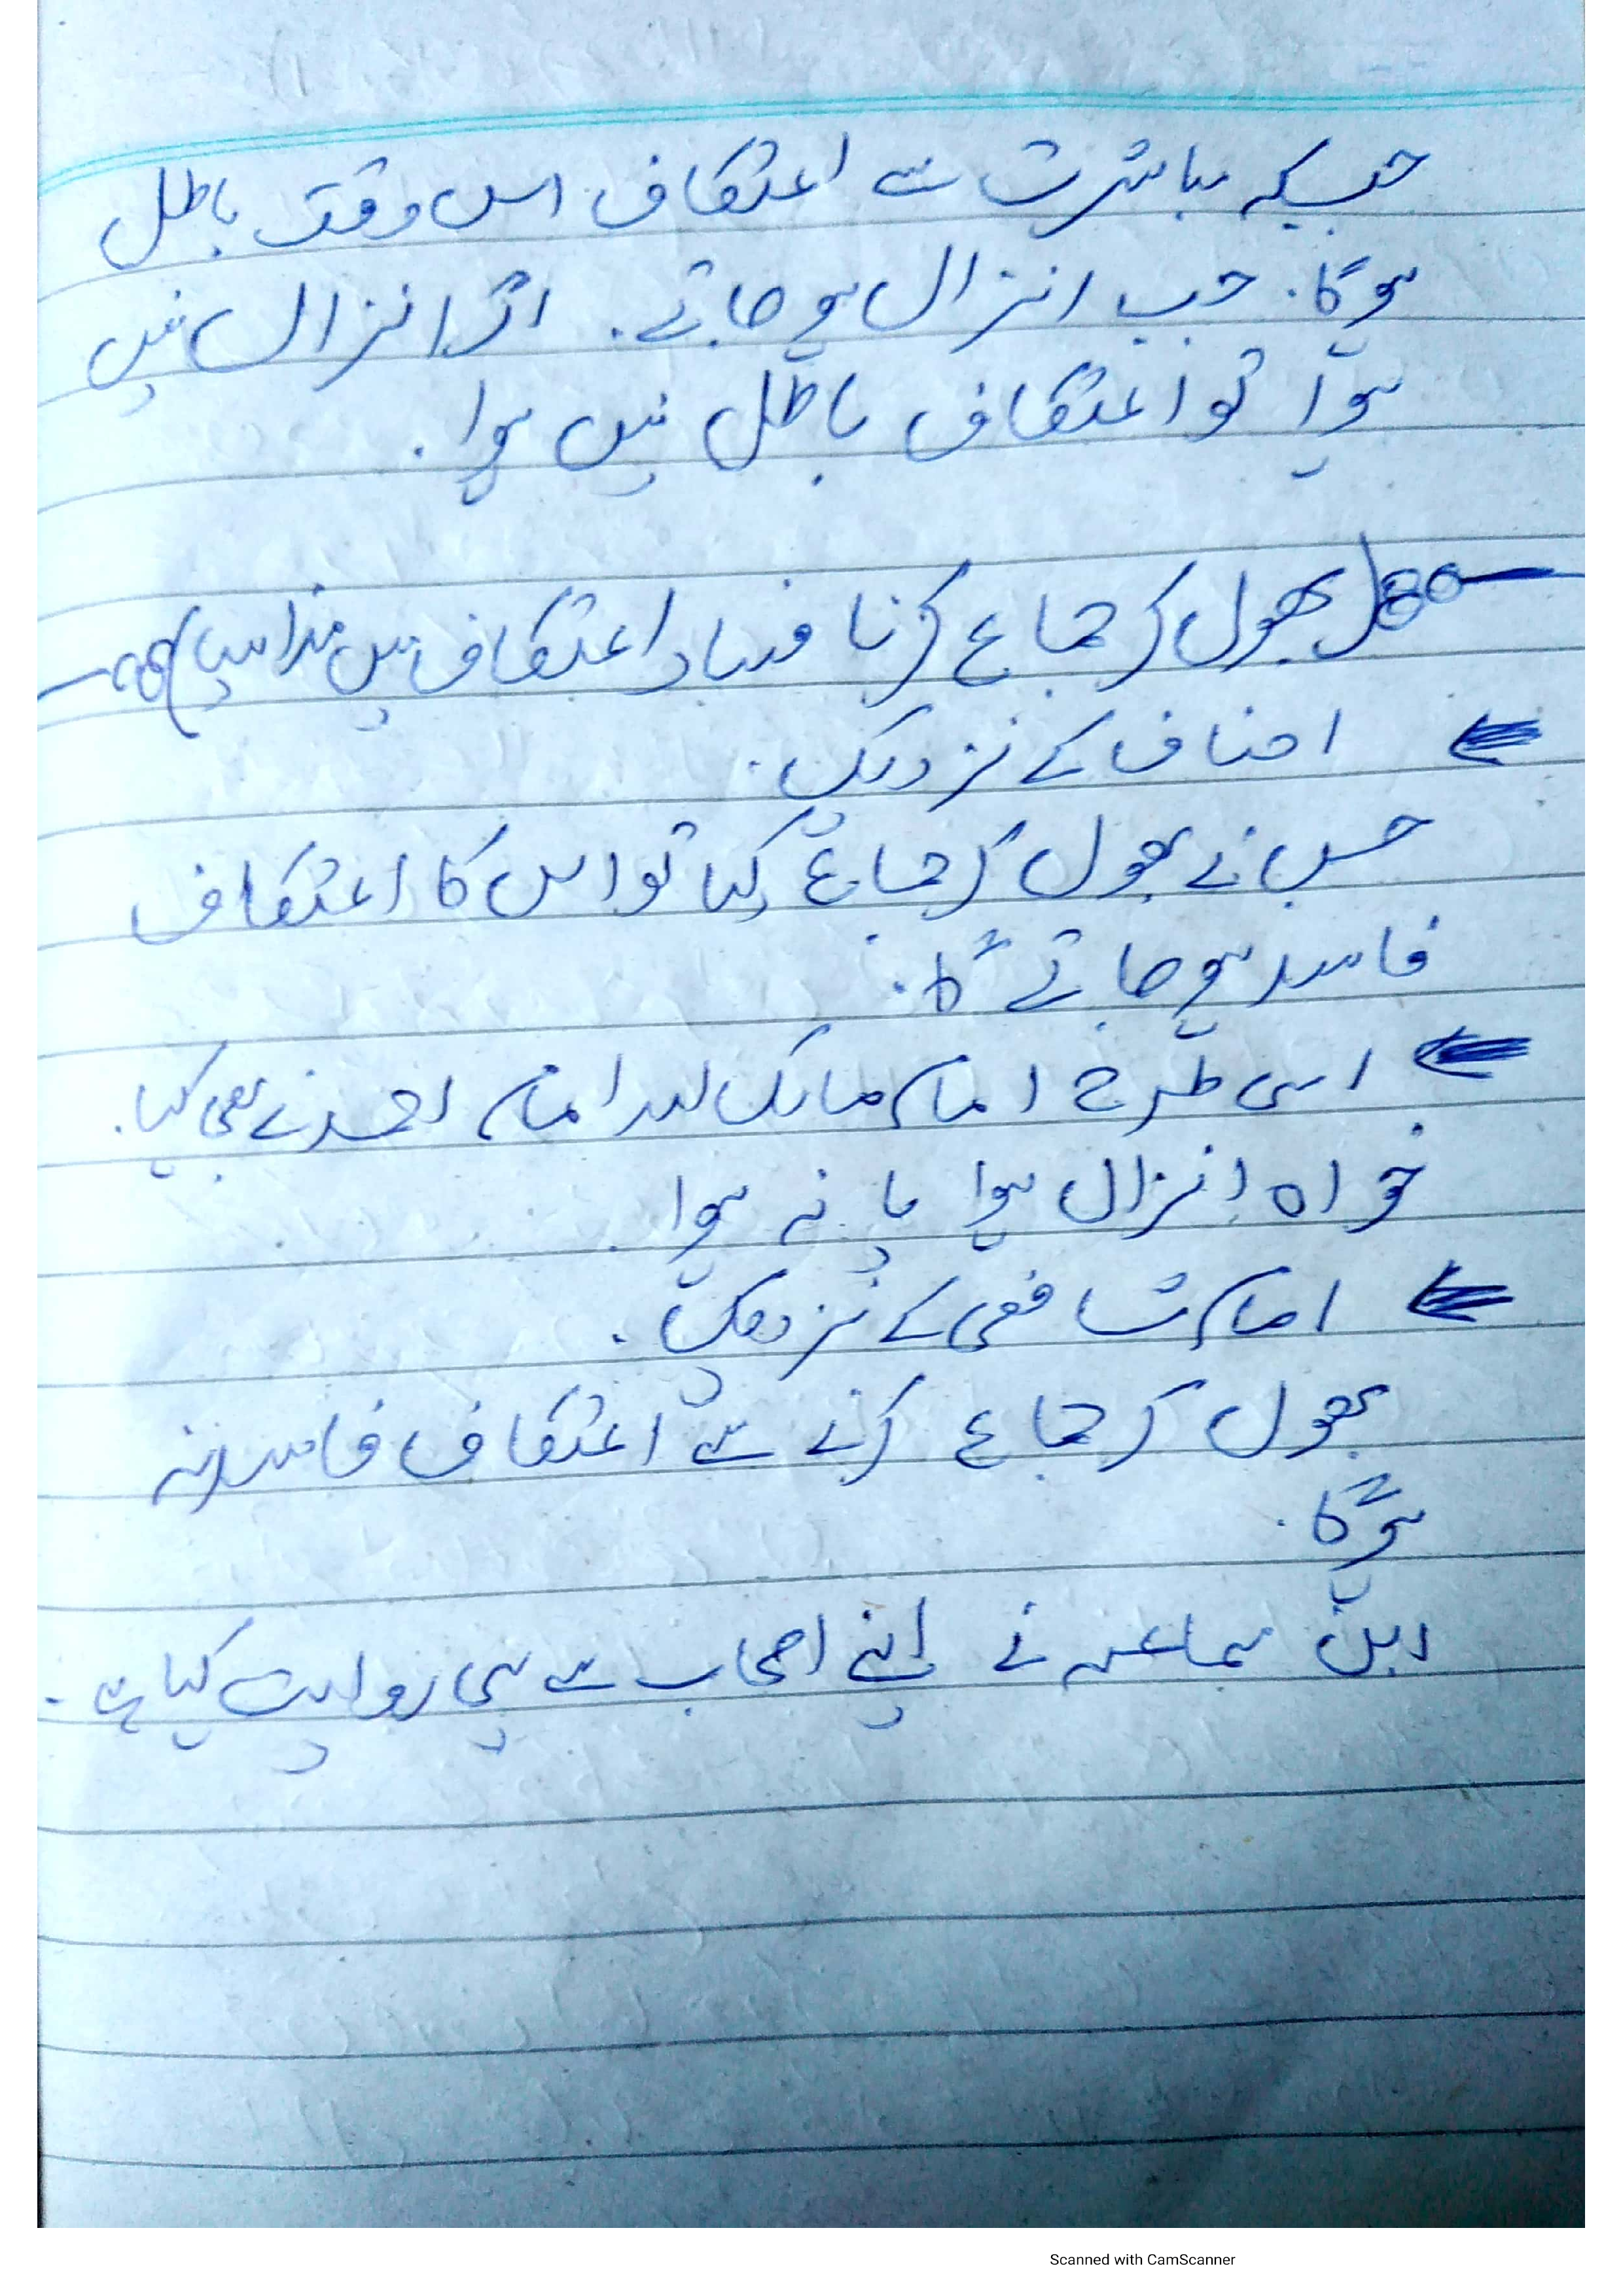 جبکہ مباشرت سے اعتکاف اس وقت باطل
ہوگا۔ جب انزال ہو جائے۔ اگر انزال نہیں
ہوا تو اعتکاف باطل نہیں ہوا۔
(بھول کر جماع کرنا فساد اعتکاف میں مذاہب)
احناف کے نزدیک۔
جس نے بھول کر جماع کیا تو اس کا اعتکاف
فاسد ہو جائے گا۔
اسی طرح امام مالک اور امام احمد نے بھی کہا۔
خواہ انزال ہوا یا نہ ہوا
امام شافعی کے نزدیک۔
بھول کر جماع کرنے سے اعتکاف فاسد نہ
ہوگا۔
ابن سماعہ نے اپنے اصحاب سے یہی روایت کیا ہے۔
Scanned with CamScanner